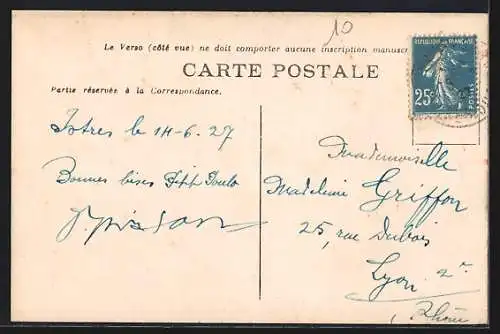 10
Le Verso (côté vue) ne doit comporter aucune inscription manuscr
CARTE POSTALE
Partie réservée à la Correspondance.
REPUBLIQUE FRANÇAISE
25c
POSTES
Istres le 14-6.27
Bonnes bises
Mademoiselle
Madeleine Griffon
25, rue Dubois
Lyon 2e
Rhône